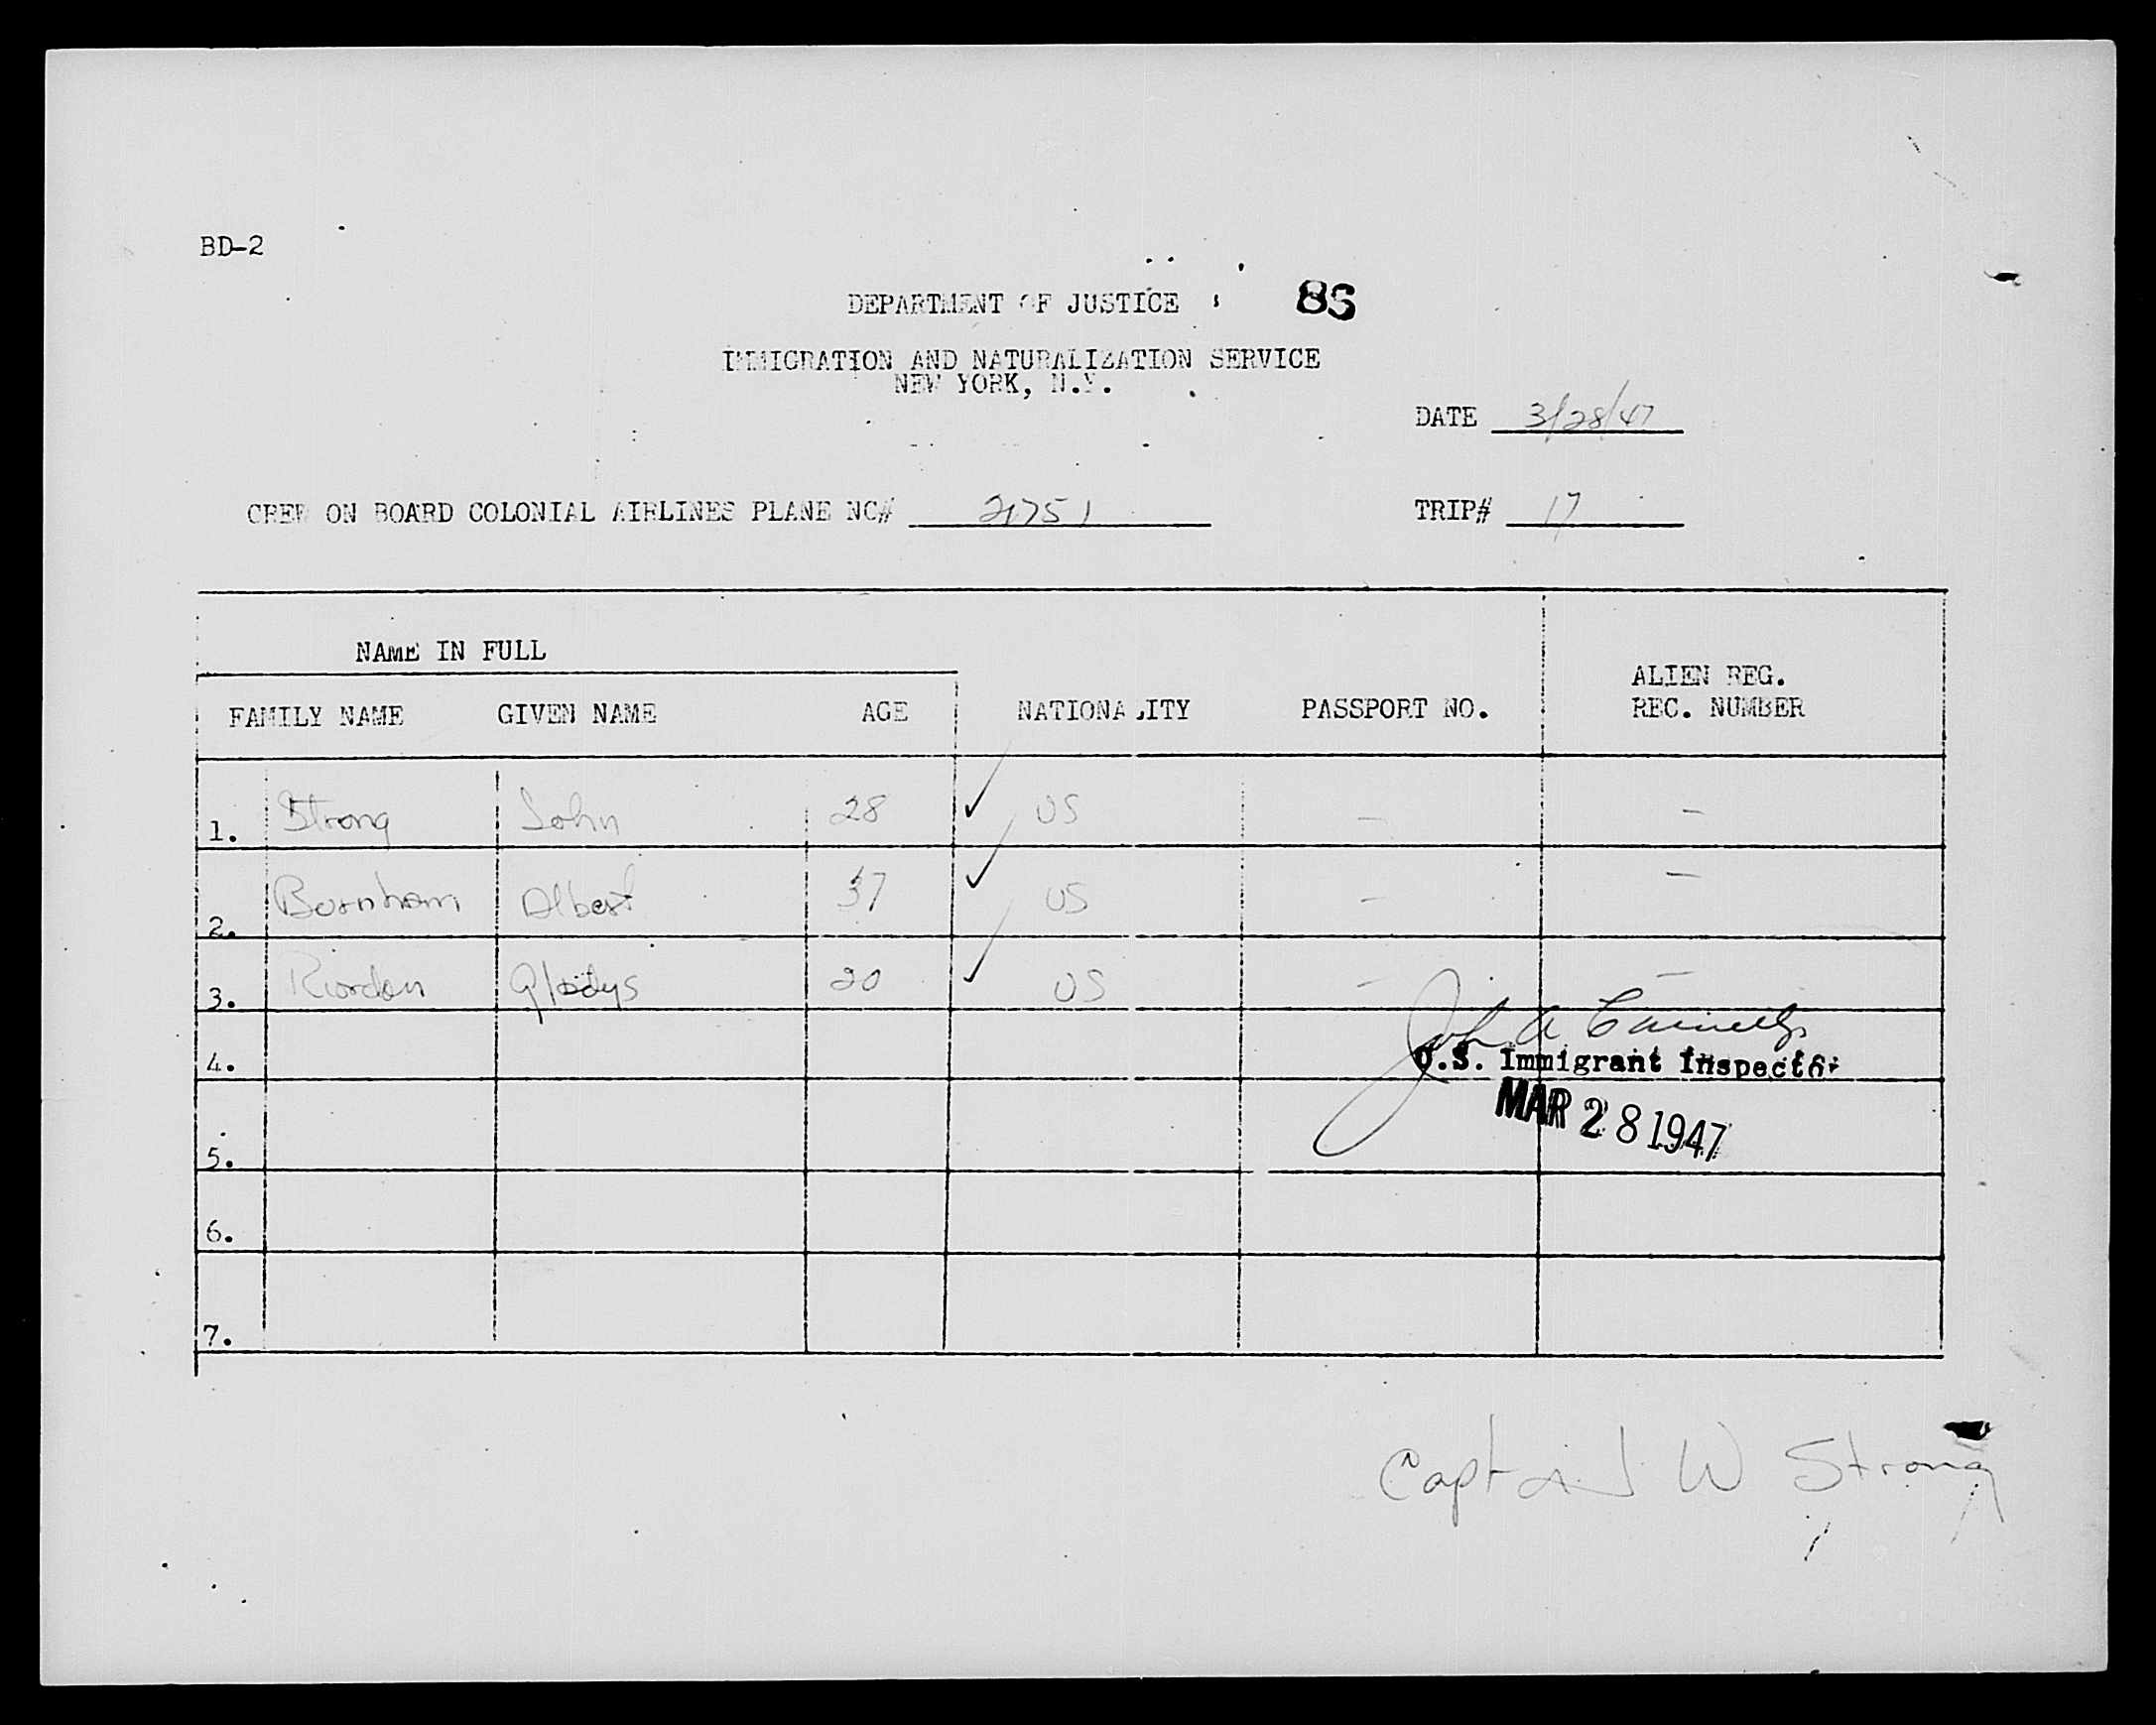 BD-2
DEPARTMENT OF JUSTICE
IMMIGRATION AND NATURALIZATION SERVICE
NEW YORK, N.Y.
DATE 3/28/47
CREW ON BOARD COLONIAL AIRLINES PLANE NC# 21751 TRIP# 17
NAME IN FULL
FAMILY NAME GIVEN NAME AGE NATIONALITY PASSPORT NO. ALIEN REG. REC. NUMBER
1. Strong John 28 ✓ US - -
2. Burnham Albert 37 ✓ US - -
3. Riordan Gladys 20 ✓ US - -
John A
4.
U.S. Immigrant Inspector
MAR 28 1947
5.
6.
7.
Captain J W Strong